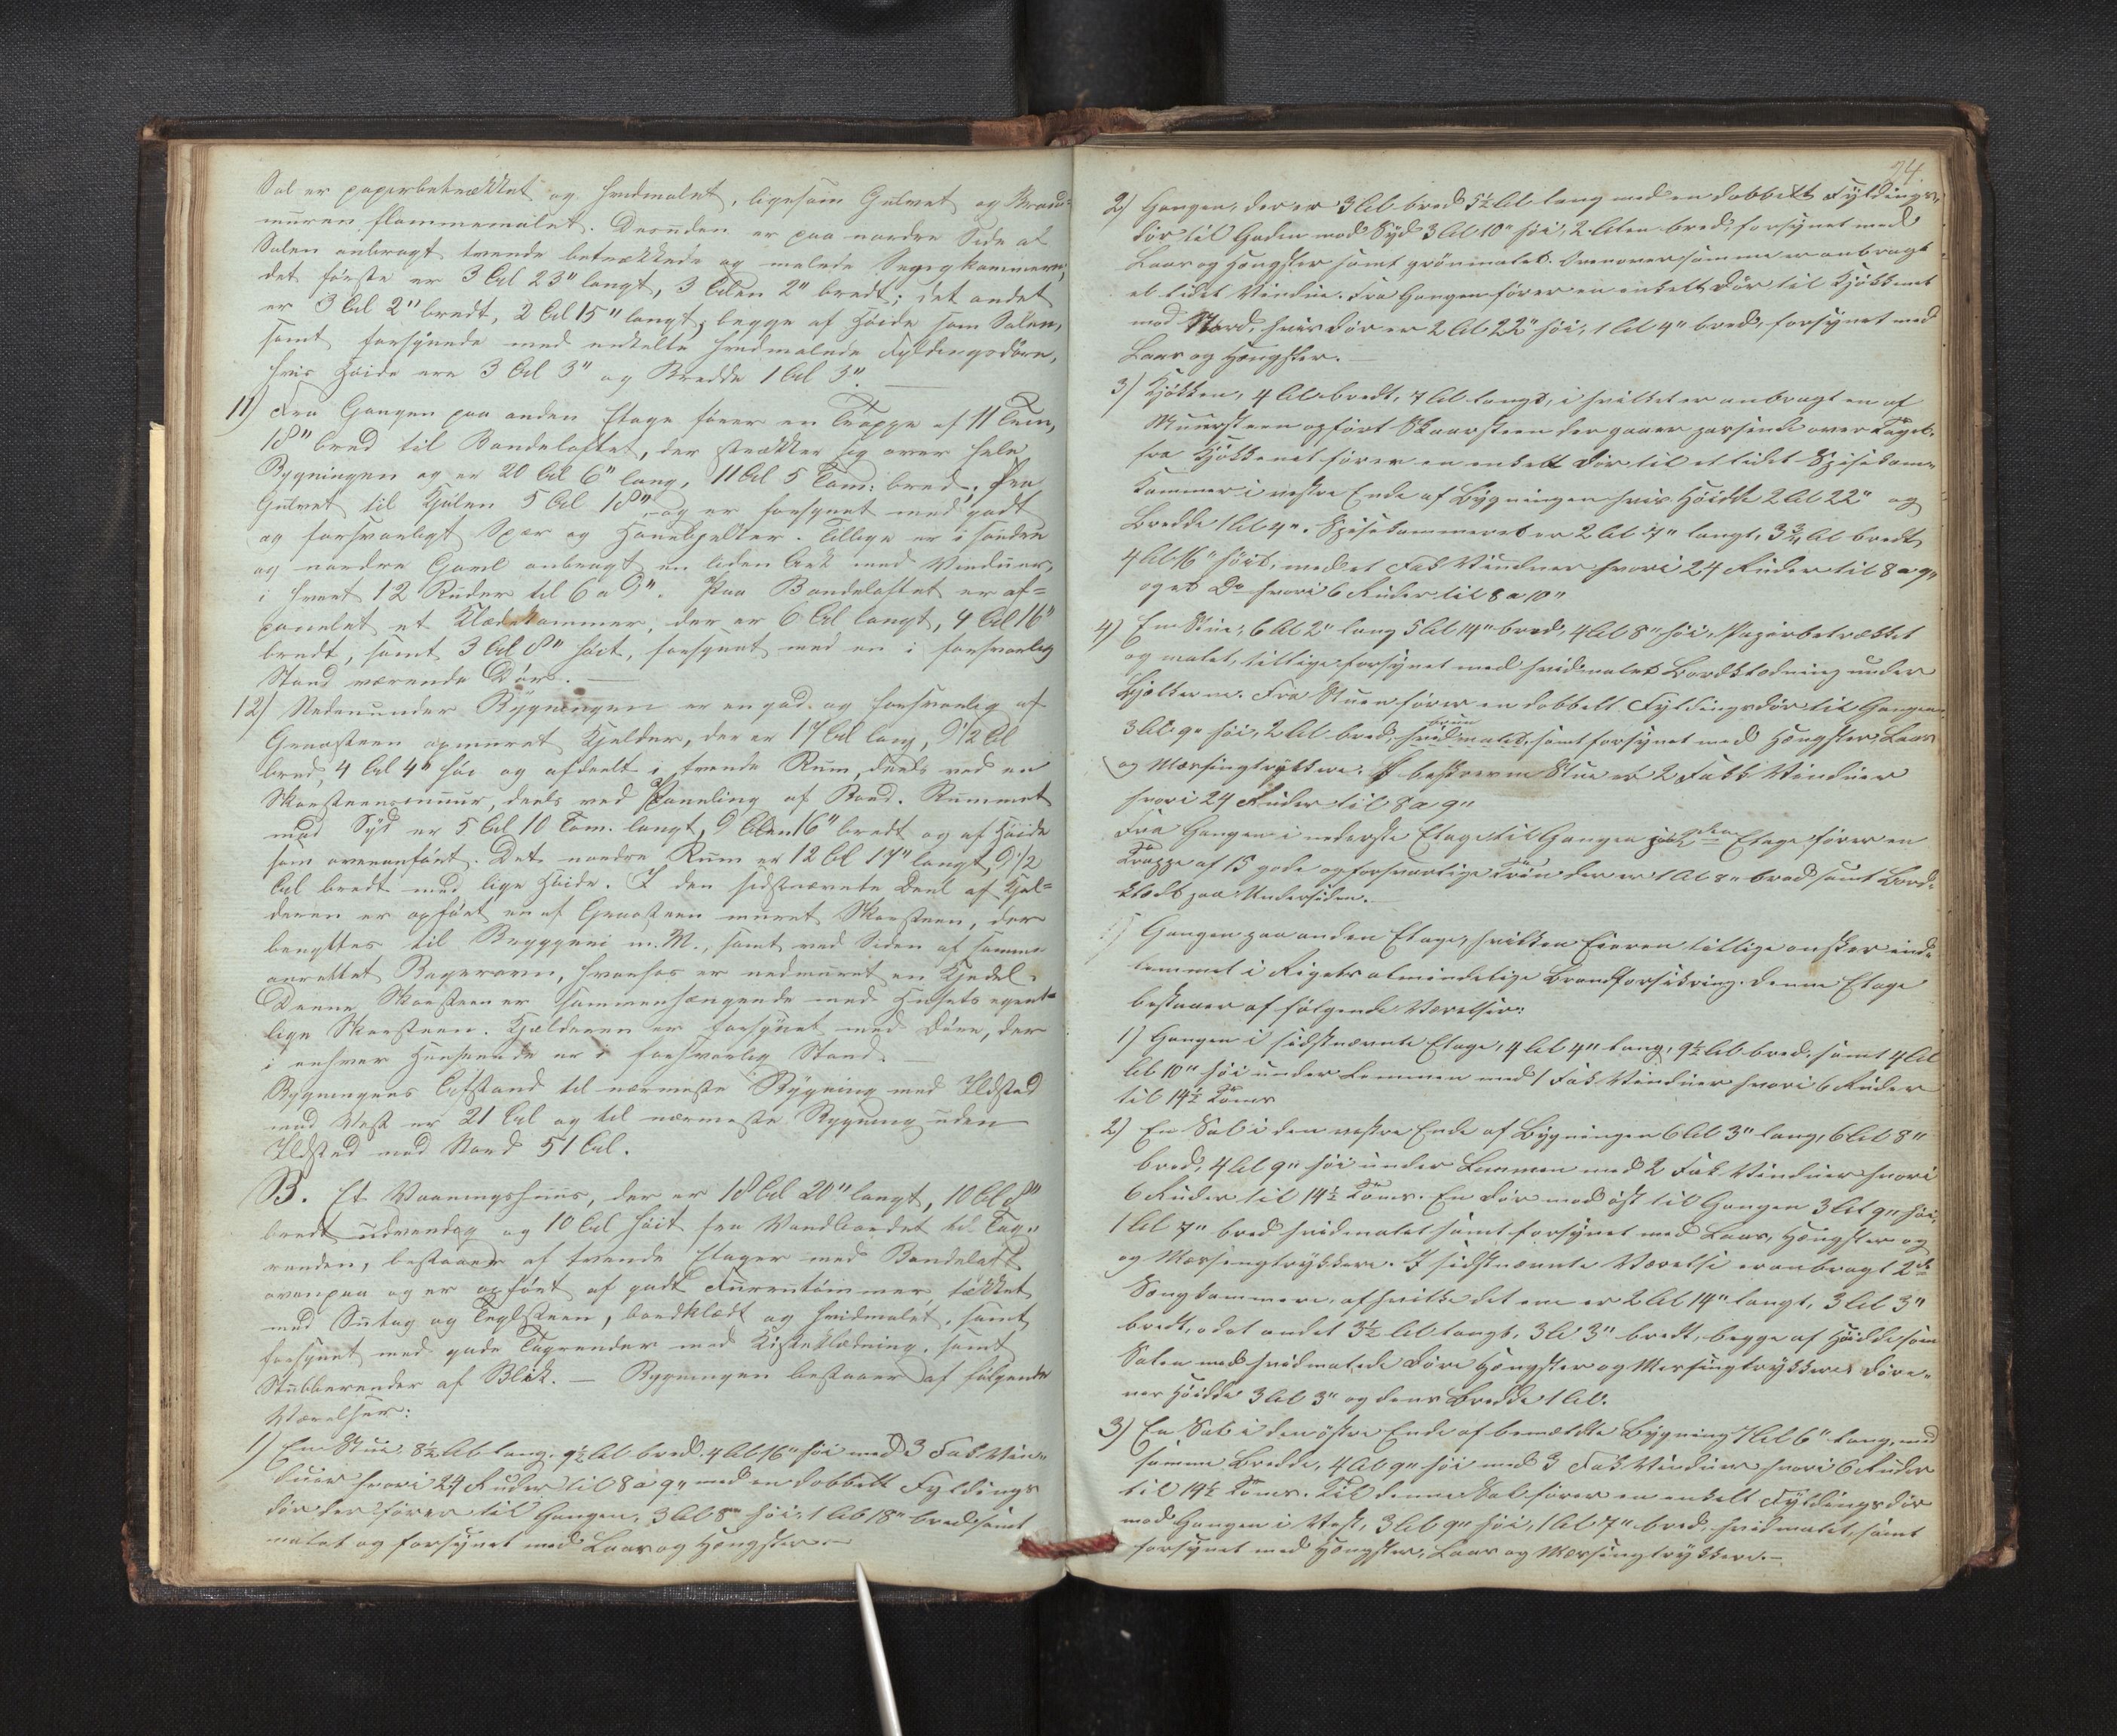 Sal er papirbetrækket og hvidmalet, ligesom Gulvet og Brand-
muren flammemalet. Desuden er paa nordre Side af
Salen anbragt tvende betrækkede og malede Sengekammere,
det første er 3 Al 23" langt, 3 Alen 2" bredt; det andet
er 3 Al 2" bredt, 2 Al 15" langt, begge af Høide som Salen,
samt forsynede med enkelte hvidmalede Fyldingsdøre,
hvis Høide ere 3 Al 3" og Bredde 1 Al 3". —
11) Fra Gangen paa anden Etage fører en Trappe af 11 Trin,
18" bred til Bondeloftet, der strækker sig over hele
Bygningen og er 20 Al 6" lang, 11 Al 5 Tom: bred. Fra
Gulvet til Kjølen 5 Al 18", og er forsynet med godt
og forsvarligt Spær og Hanebjelker. Tillige er i søndre
og nordre Gavl anbragt en liden Ark med Vinduer,
i hvert 12 Ruder til 6 a 9". Paa Bondeloftet er af=
panelet et Klædekammer, der er 6 Al langt, 4 Al 16"
bredt, samt 3 Al 8" høit, forsynet med en i forsvarlig
Stand værende Dør. —
12) Nedenunder Bygningen er en god og forsvarlig af
Graasteen opmuret Kjelder, der er 17 Al lang, 9 1/2 Al
bred, 4 Al 4" høi og afdeelt i tvende Rum, deels ved en
Skorsteensmuur, deels ved Paneling af Bord. Rummet
mod Syd er 5 Al 10 Tom. langt, 9 Alen 16" bredt og af Høide
som ovenanført. Det nordre Rum er 12 Al 17" langt, 9 1/2
Al bredt med lige Høide. I den sidstnævnte Deel af Kjel=
deren er opført en af Graasteen muret Skorsteen, der
benyttes til Bryggeri m. M., samt ved Siden af samme
anrettet Bagerovn, hvorhos er nedmuret en Kjedel.
Denne Skorsteen er sammenhængende med Husets egent=
lige Skorsteen. Kjelderen er forsynet med Døre, der
i enhver Henseende er i forsvarlig Stand.
Bygningens Afstand til nærmeste Bygning med Ildsted
mod Vest er 21 Al og til nærmeste Bygning uden
Ildsted mod Nord 51 Al.
B. Et Vaaningshuus, der er 18 Al 20" langt, 10 Al 8"
bredt udvendig og 10 Al høit fra Vandbordet til Tag-
randen, bestaaer af tvende Etager med Bondeloft
ovenpaa og er opført af godt Furrutømmer tækket
med Sutag og Teglsteen, bordklædt og hvidmalet, samt
forsynet med gode Tagrender med Kisteklædning, samt
Stubberender af Blik. — Bygningen bestaaer af følgende
Værelser:
1) En Stue, 8½ Al lang, 9½ Al bred, 4 Al 16" høi med 3 Fak Vin-
duer hvori 24 Ruder til 8 a 9", med en dobbelt Fyldings
dør der fører til Gangen, 3 Al 8" høi, 1 Al 18" bred samt
malet og forsynet med Laas og Hængsler. —
24.
2) Gangen, der er 3 Al bred 5½ Al lang med en dobbelt Fyldings-
dør til Gaden mod Syd 3 Al 10" høi, 2 Alen bred, forsynet med
Laas og Hængsler samt grønmalet. Ovenover samme er anbragt
et lidet Vindue. Fra Gangen fører en enkelt Dør til Kjøkkenet
mod Nord, hvis Dør er 2 Al 22" høi, 1 Al 4" bred, forsynet med
Laas og Hængsler. —
3) Kjøkken, 4 Al bredt, 7 Al langt, i hvilket er anbragt en af
Muursteen opført Skaarsteen der gaaer passende over Taget.
fra Kjøkkenet fører en enkelt Dør til et lidet Spisekam-
Kammer i vestre Ende af Bygningen hvis Høide 2 Al 22" og
Bredde 1 Al 4". Spisekammeret er 2 Al 7" langt, 3¾ Al bredt
4 Al 16" høit, med et Fak Vinduer hvori 24 Ruder til 8 a 9"
og et Do hvori 6 Ruder til 8 a 10"
4) En Stue, 6 Al 2" lang 5 Al 14" bred, 4 Al 8" høi, Papirbetrækket
og malet, tillige forsynet med hvidmalet Bordklædning under
Bjelkerne. Fra Stuen fører en dobbelt Fyldingsdør til Gangen
3 Al 9" høi, 2 Al bred, hvidmalet, samt forsynet med Hængsler, Laas
brun
og Messingtrykkere. I beskrevne Stue er 2 Fakk Vinduer
hvori 24 Ruder til 8 a 9"
Fra Gangen i nederste Etage til Gangen paa 2den Etage fører en
Trappe af 15 gode og forsvarlige Trin der er 1 Al 8" bred samt Bord-
klædt paa Undersiden. —
Gangen paa anden Etage, hvilken Eieren tillige ønsker ind-
lemmet i Rigets almindelige Brandforsikring. Denne Etage
bestaaer af følgende Værelser:
1) Gangen i sidstnævnte Etage, 4 Al 4" lang, 9½ Al bred, samt 4 Al
Al 10" høi under Lemmen med 1 Fak Vinduer hvori 6 Ruder
til 14½ Toms
2) En Sal i den vestre Ende af Bygningen 6 Al 3" lang, 6 Al 8"
bred, 4 Al 9" høi under Lemmen med 2 Fak Vinduer hvori
6 Ruder til 14½ Toms. En Dør mod Øst til Gangen 3 Al 9" høi,
1 Al 7" bred hvidmalet samt forsynet med Laas, Hængsler og
og Messingtrykkere. I sidstnævnte Værelse er anbragt 2de
Sengkammere, af hvilke det ene er 2 Al 14" langt, 3 Al 3"
bredt, o det andet 3½ Al langt, 3 Al 3" bredt, begge af Høidde som
Salen med hvidmalede Døre Hængsler og Messingtrykkere, Døre-
nes Høidde 3 Al 3" og dens Bredde 1 Al.
3) En Sal i den østre Ende af bemældte Bygning 7 Al 6" lang, med
samme Bredde, 4 Al 9" høi med 3 Fak Vinduer hvori 6 Ruder
til 14½ Toms. Til denne Sal fører en enkelt Fyldingsdør
mod Gangen i Vest, 3 Al 9" høi, 1 Al 7" bred, hvidmalet, samt
forsynet med Hængsler, Laas og Messingtrykkere. —